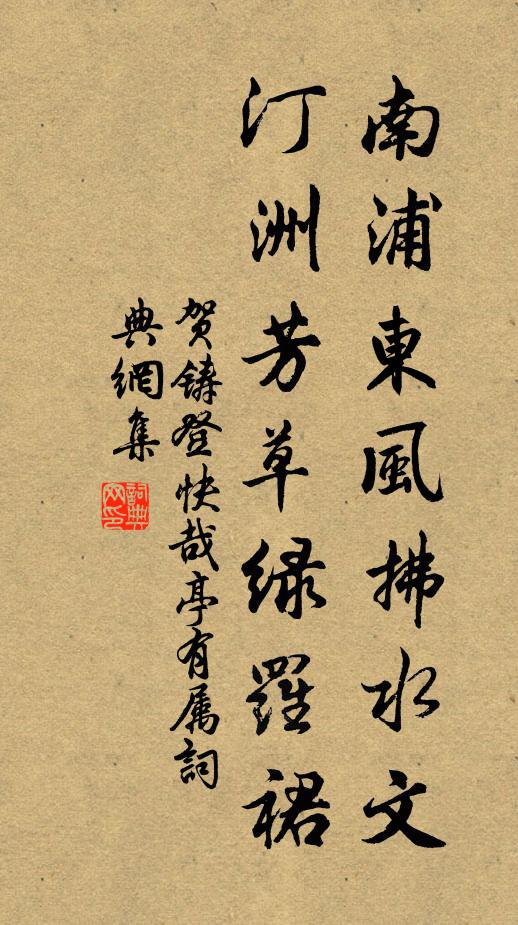 南浦東風拂水文
汀洲芳草绿羅裙
贺鑄登快哉亭有属詞
典網集
詞典
网印